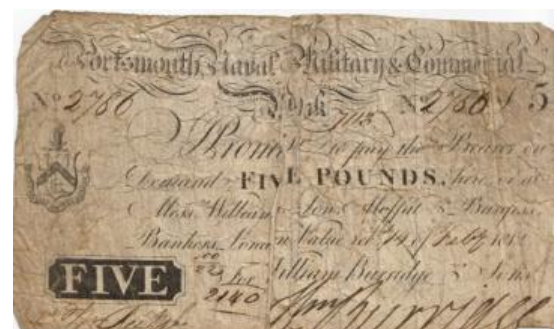 Portsmouth Naval Military & Commercial
Bank
No 2760 No 2760 £ 5
I Promise to pay the Bearer on
Demand FIVE POUNDS, here or at
Messrs Williams Sons Moffat & Burgess
Bankers London Value recd 14 of Feby
William Burridge & Sons
FIVE
For
2140